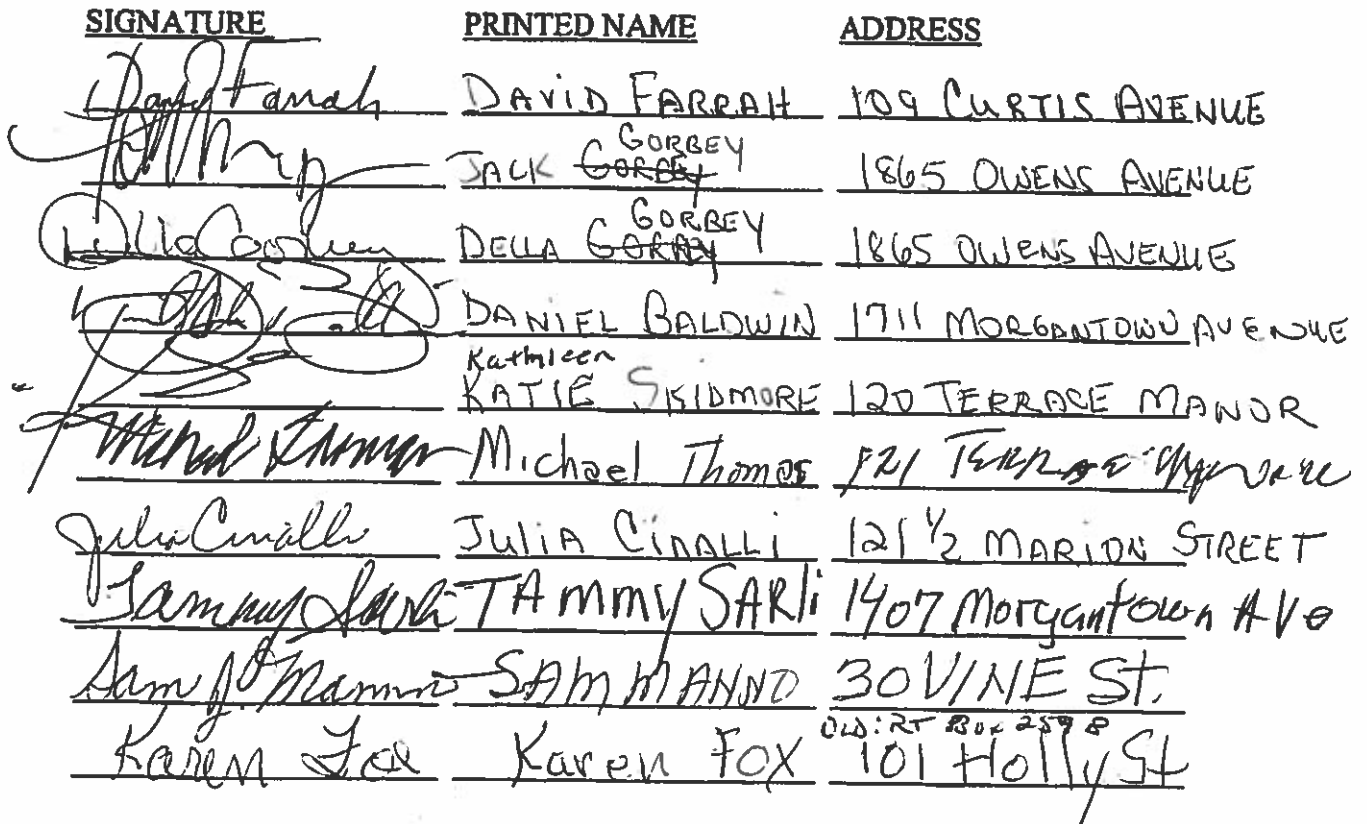 SIGNATURE PRINTED NAME ADDRESS
David Farrah DAVID FARRAH 109 CURTIS AVENUE
GORBEY
JACK GORBEY 1865 OWENS AVENUE
GORBEY
Della Gorbey DELLA GORBEY 1865 OWENS AVENUE
DANIEL BALDWIN 1711 MORGANTOWN AVENUE
Kathleen
KATIE SKIDMORE 120 TERRACE MANOR
Michael Thomas Michael Thomas 121 TERRACE
Julia Cinalli JULIA CINALLI 121 1/2 MARION STREET
Tammy Sarli TAMMY SARLi 1407 Morgantown AVe
Sam J. Manno SAM MANNO 30 VINE St.
OLD: RT Box 259 B
Karen Fox Karen FOX 101 Holly St